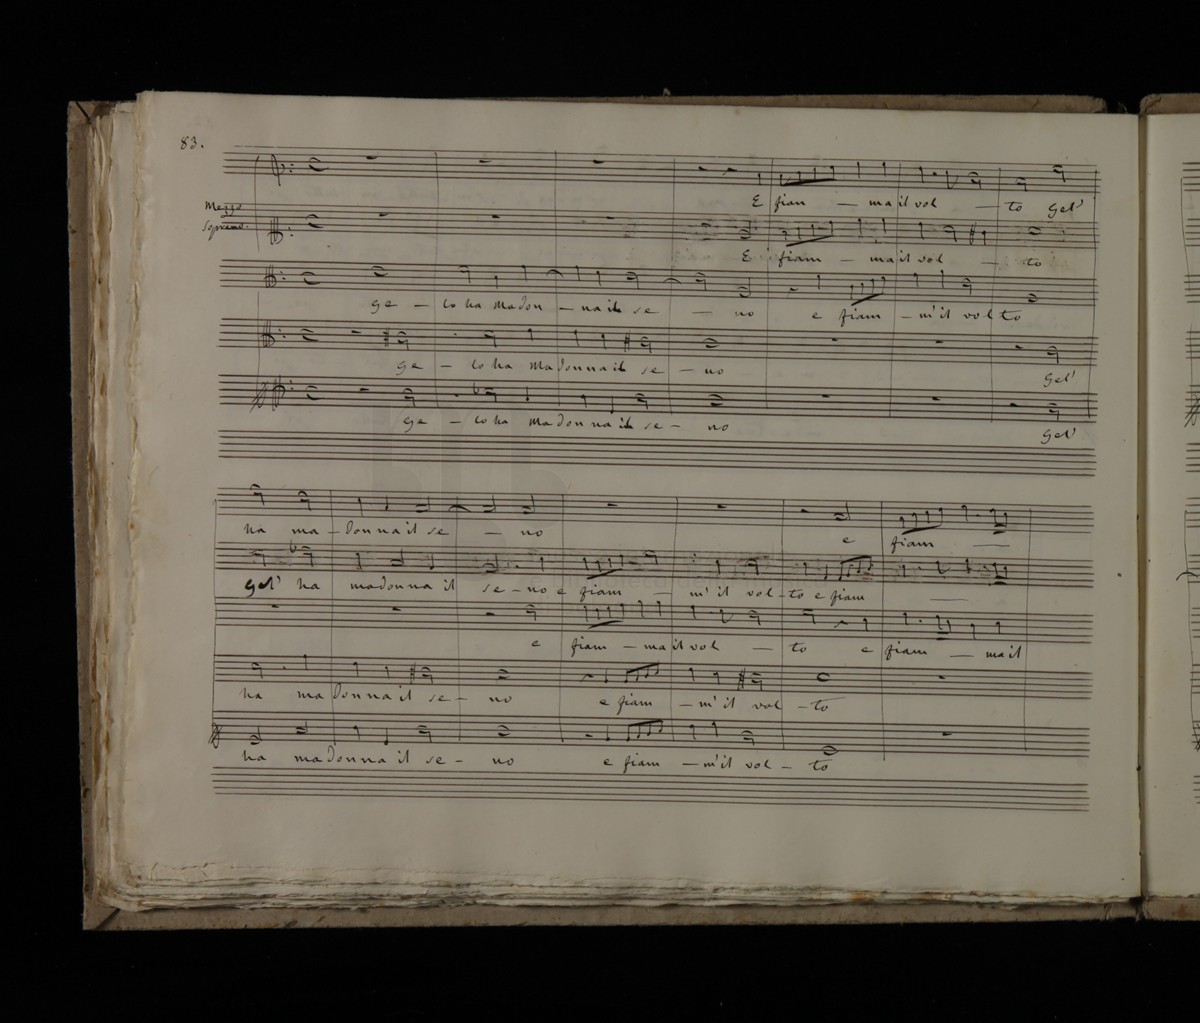 83.
E fiam — ma il vol — to Gel'
Mezzo
Soprano.
E fiam — ma il vol — to
Ge — lo ha madon — na il se — no e fiam — m'il volto
Ge — lo ha madonna il se — no Gel'
Ge — lo ha madonna il se — no Gel'
ha ma — donna il se — no e fiam —
Gel' ha madonna il se — no e fiam — m'il vol — to e fiam —
e fiam — ma il vol — to e fiam — ma il
ha madonna il se — no e fiam — m'il vol — to
ha madonna il se — no e fiam — m'il vol — to